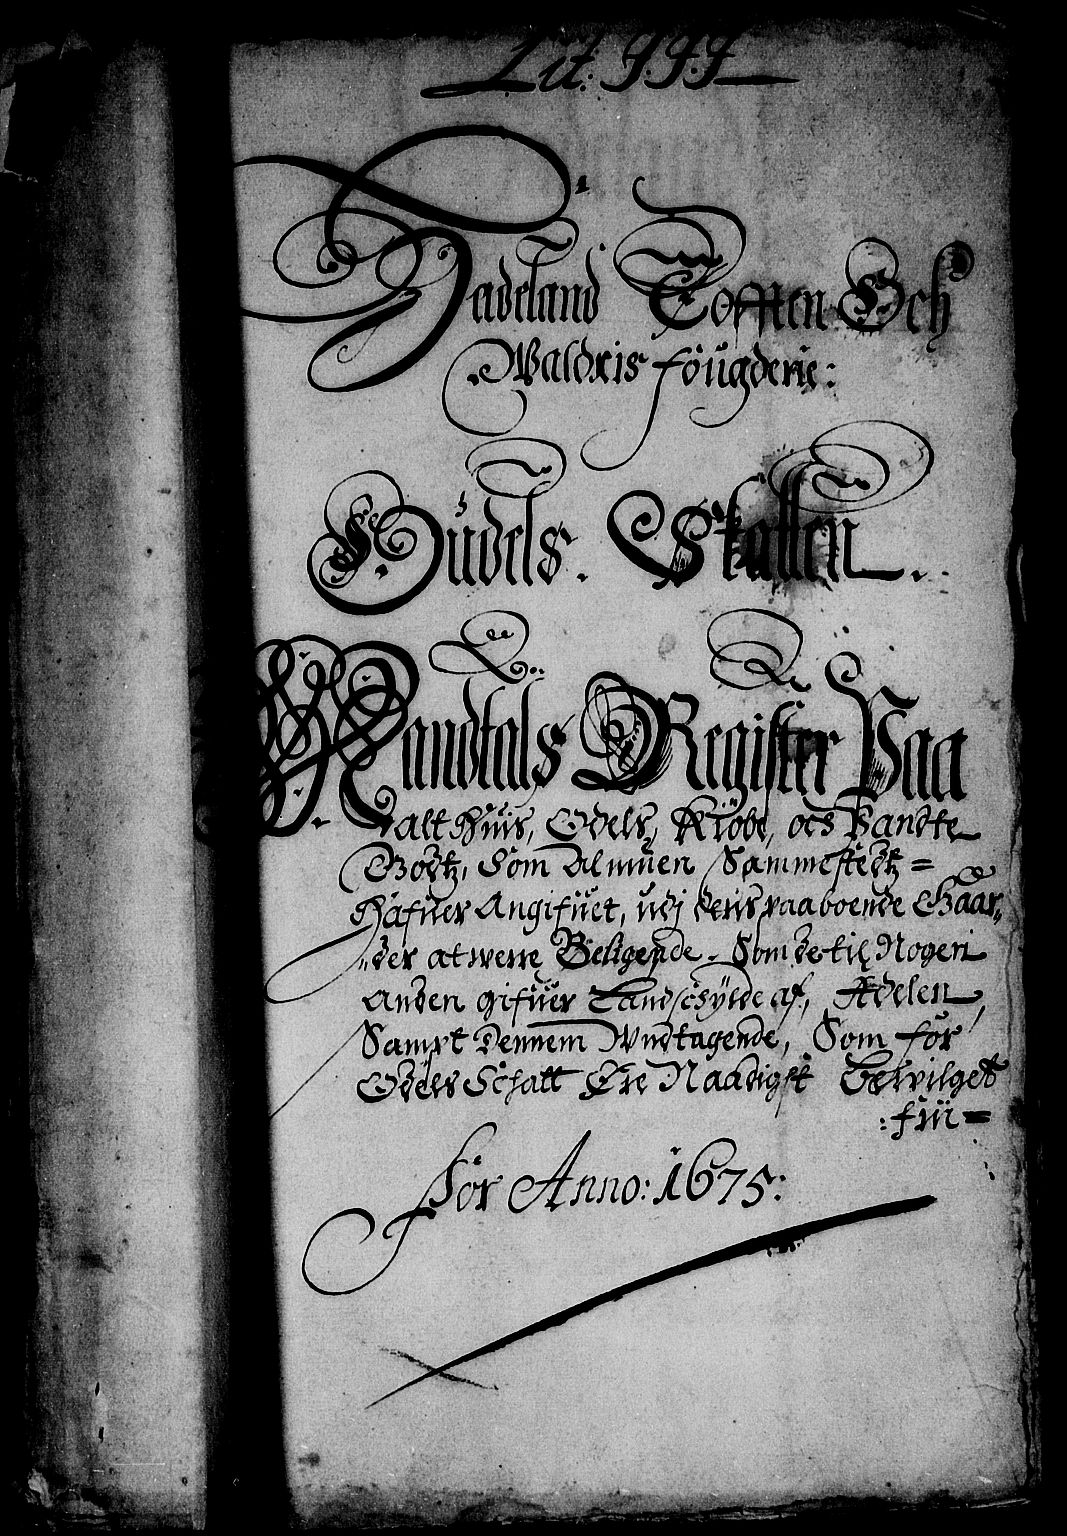 Lit. G.G.G
Hadeland Tofften Och
Waldris fougderie:
Oudels. Skatten.
Mandtals Register Paa
alt Huis, Odels, Kiøbe, och Pandte
Godtz, Som Almuen Sammestedtz =
Hafuer Angifuet, udj deris paaboende Gaar„
„der at were Beligende. Som de til Nogen
Anden gifuer Landschylde af, Adelen,
Sampt dennem Undtagende, Som for
Odels Schatt Ere Naadigst Bewilget
: frii =
for Anno: 1675: